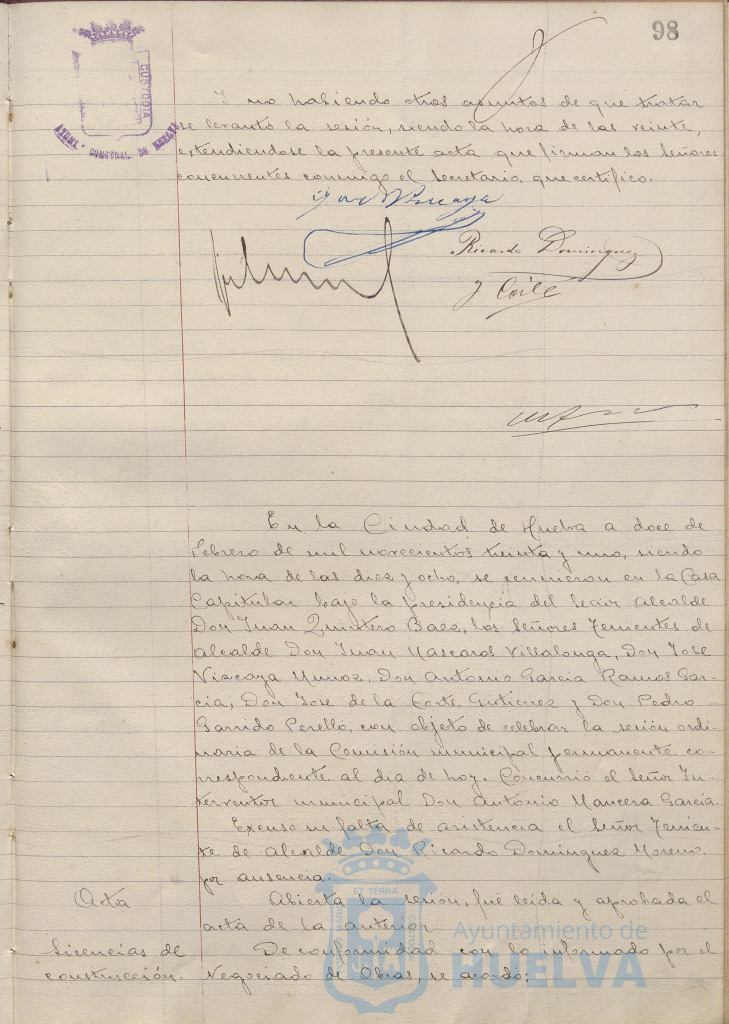 98
CUSTODIA
AYUNT. CONSTNAL. DE HUELVA
Y no habiendo otros asuntos de que tratar
se levantó la sesión, siendo la hora de las veinte,
extendiéndose la presente acta que firman los Señores
concurrentes conmigo el Secretario, que certifico.
José Vizcaya
Ricardo Dominguez
J Corte
En la Ciudad de Huelva a doce de
Febrero de mil novecientos treinta y uno, siendo
la hora de las diez y ocho, se reunieron en la Casa
Capitular bajo la presidencia del Señor Alcalde
Don Juan Quintero Baez, los Señores Tenientes de
Alcalde Don Juan Mascaros Villalonga, Don José
Vizcaya Muñoz, Don Antonio Garcia Ramos Gar-
cia, Don Jose de la Corte Gutierrez y Don Pedro
Garrido Perelló, con objeto de celebrar la sesión ordi-
naria de la Comisión municipal permanente co-
rrespondiente al dia de hoy. Concurrió el Señor In-
terventor municipal Don António Mancera García.
Excusó su falta de asistencia el Señor Tenien-
te de Alcalde Don Ricardo Dominguez Moreno.
por ausencia.
Acta
Abierta la sesión, fué leida y aprobada el
acta de la anterior.
Licencias de
construcción.
De conformidad con lo informado por el
Negociado de Obras, se acordó:
Ayuntamiento de
HUELVA